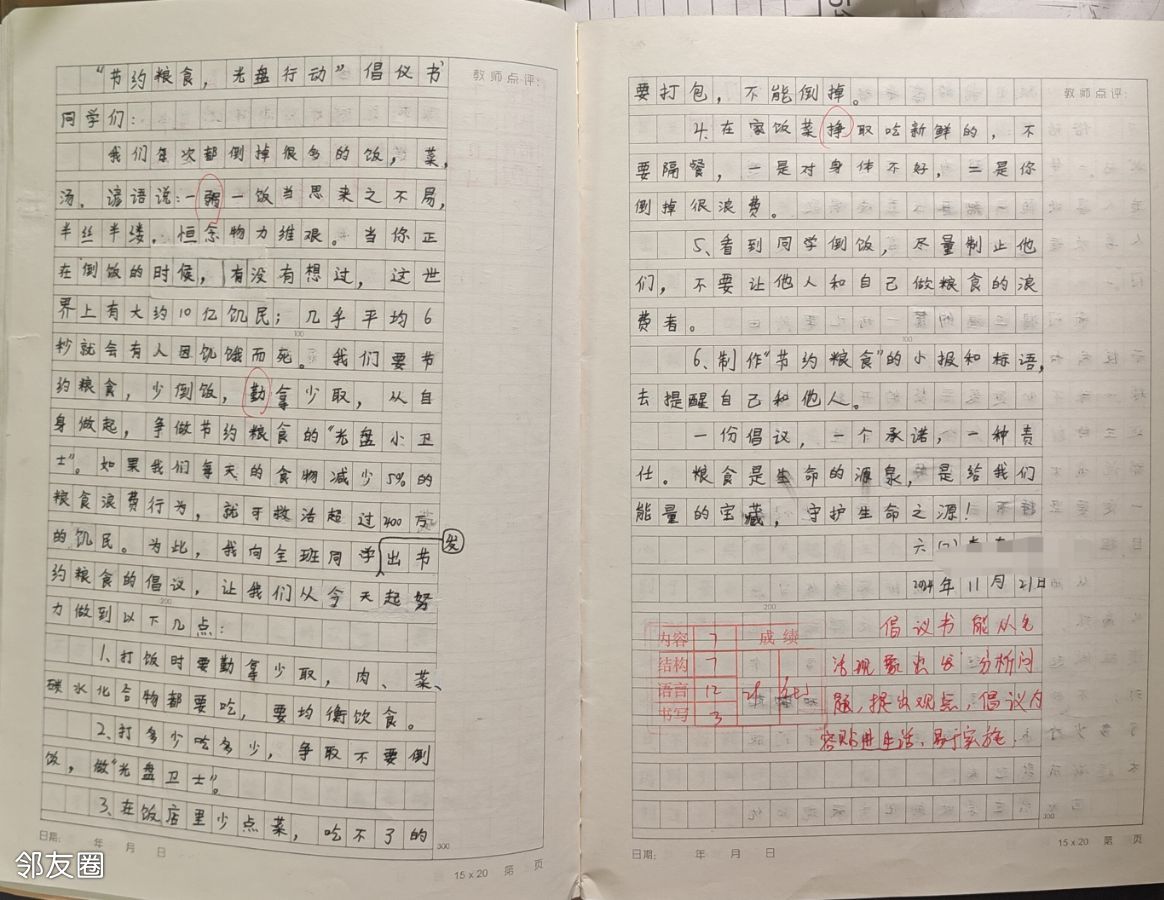 “节约粮食，光盘行动”倡仪书
教师点评：
同学们：
我们每次都倒掉很多的饭，菜，
汤。谚语说：一粥一饭当思来之不易，
半丝半缕，恒念物力维艰。当你正
在倒饭的时候，有没有想过，这世
界上有大约10亿饥民；几乎平均6
秒就会有人因饥饿而死。我们要节
100
约粮食，少倒饭，勤拿少取，从自
身做起，争做节约粮食的“光盘小卫
士”。如果我们每天的食物减少5%的
粮食浪费行为，就可救活超过400万
的饥民。为此，我向全班同学出节
发
约粮食的倡议，让我们从今天起努
200
力做到以下几点：
1、打饭时要勤拿少取，肉、菜、
碳水化合物都要吃，要均衡饮食。
2、打多少吃多少，争取不要倒
饭，做“光盘卫士”。
3、在饭店里少点菜，吃不了的
300
日期： 年 月 日
15×20 第 页
邻友圈
要打包，不能倒掉。
教师点评：
4、在家饭菜挣取吃新鲜的，不
要隔餐，一是对身体不好，二是你
倒掉很浪费。
5、看到同学倒饭，尽量制止他
们，不要让他人和自己做粮食的浪
费者。
100
6、制作“节约粮食”的小报和标语，
去提醒自己和他人。
一份倡议，一个承诺，一种责
任。粮食是生命的源泉，是给我们
能量的宝藏，守护生命之源！
六(一)
2024年11月21日
200
内容 7 成绩
结构 7
语言 12
书写 3
倡议书能从生
活现象出发分析问
题，提出观点，倡议内
容贴进生活，易于实施。
300
日期： 年 月 日
15×20 第 页